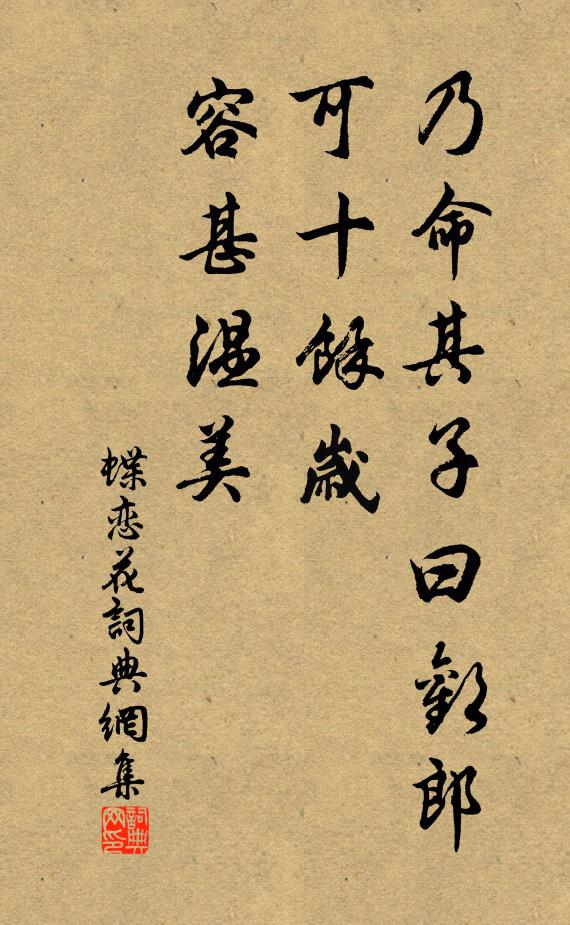 乃命其子曰歡郎
可十餘歲
容甚溫美
蝶恋花詞典網集
詞典
网印